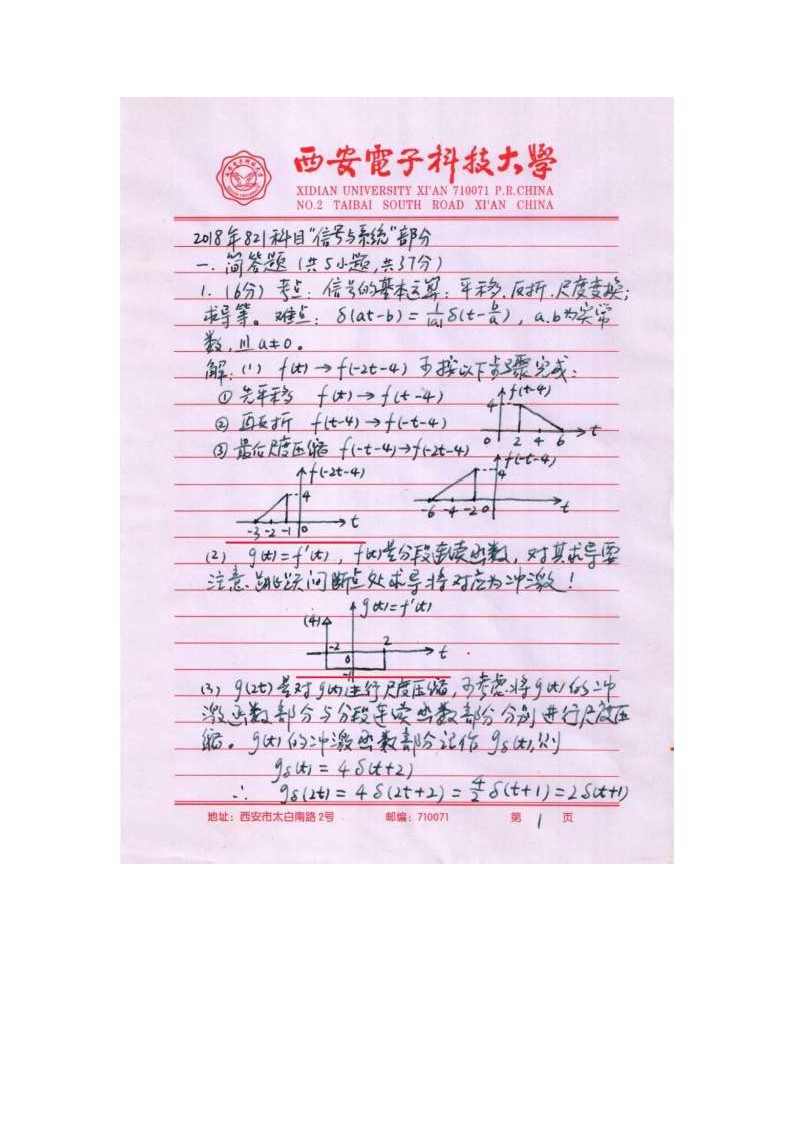 西安電子科技大學
XIDIAN UNIVERSITY XI'AN 710071 P.R.CHINA
NO.2 TAIBAI SOUTH ROAD XI'AN CHINA
2018年821科目“信号与系统”部分
一、简答题（共5小题,共37分）
1.（6分）考点：信号的基本运算：平移、反折、尺度变换；
求导等。难点：δ(at-b)=1/|a| δ(t-b/a)，a、b为实常
数,且a≠0。
解：(1) f(t)→f(-2t-4) 可按以下步骤完成：
① 先平移 f(t)→f(t-4)
f(t-4)
4
0 2 4 6 t
② 再反折 f(t-4)→f(-t-4)
③ 最后尺度压缩 f(-t-4)→f(-2t-4)
f(-2t-4)
4
-3 -2 -1 0 t
f(-t-4)
4
-6 -4 -2 0 t
(2) g(t)=f'(t)，f(t)是分段连续函数，对其求导要
注意，跳跃间断点处求导将对应为冲激！
g(t)=f'(t)
(4)
-2 0 2 t
-1
(3) g(2t)是对g(t)进行尺度压缩，可考虑将g(t)的冲
激函数部分与分段连续函数部分分别进行尺度压
缩。g(t)的冲激函数部分记作gδ(t),则
gδ(t)=4δ(t+2)
∴ gδ(2t)=4δ(2t+2)=4/2 δ(t+1)=2δ(t+1)
地址：西安市太白南路2号 邮编：710071 第 1 页